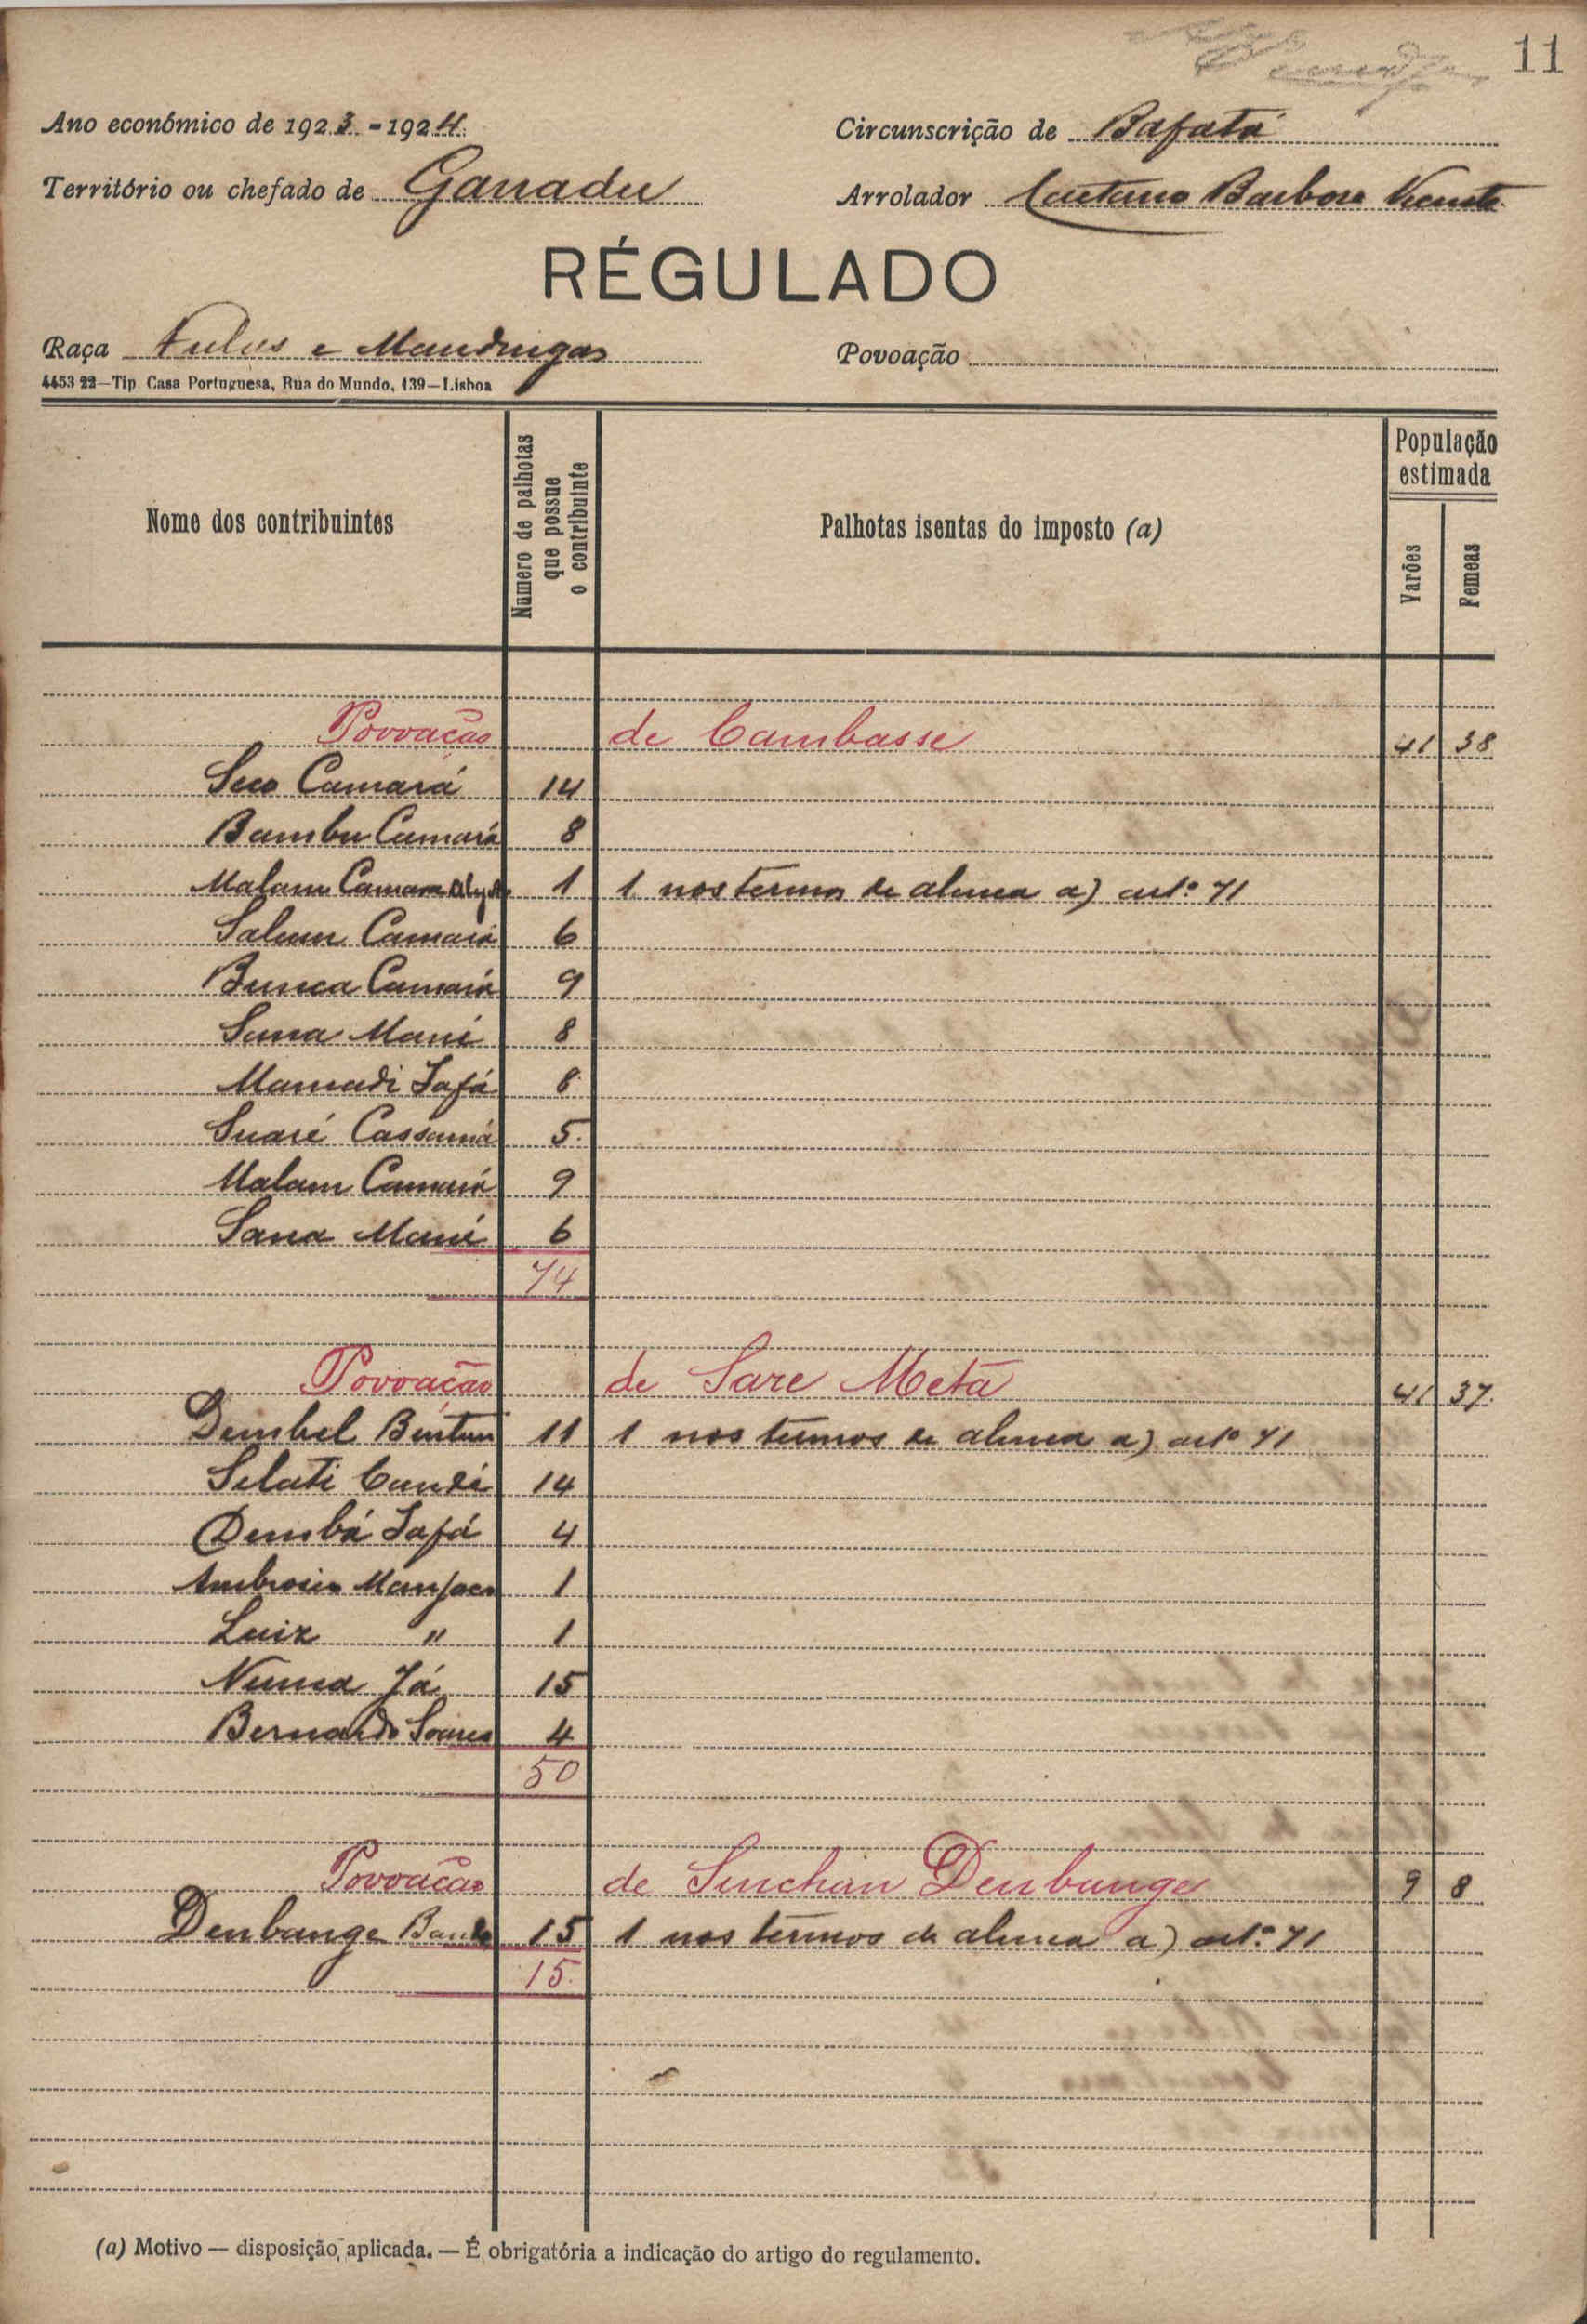 11
Ano económico de 1923-1924.
Circunscrição de Bafatá
Território ou chefado de Ganadu
Arrolador Caetano Barbosa Vicente
RÉGULADO
Raça Fulas e Mandingas
Povoação
4453 22—Tip. Casa Portuguesa, Rua do Mundo, 139—Lisboa
Nome dos contribuintes
Número de palhotas que possue o contribuinte
Palhotas isentas do imposto (a)
População estimada
Varões
Femeas
Povoação de Cambasse 41 38
Seco Camará 14
Bambu Camará 8
Malam Camara 1 1 nos termos de alinea a) art.º 71
Camará 6
Camará 9
Sana Mané 8
Mamadi Safá 8
Suaré Cassamá 5.
Malam Camará 9
Sana Mané 6
74
Povoação de Sare Metá 41 37.
Dembel 11 1 nos termos de alinea a) artº 71
Selati Candé 14
Dembá Safá 4
Ambrosio Manjaco 1
Luiz " 1
Numa Já 15
Bernardo Soares 4
50
Povoação de Sinchan Denbange 9 8
Denbange 15 1 nos termos de alinea a) art.º 71
15.
(a) Motivo — disposição, aplicada. — É obrigatória a indicação do artigo do regulamento.